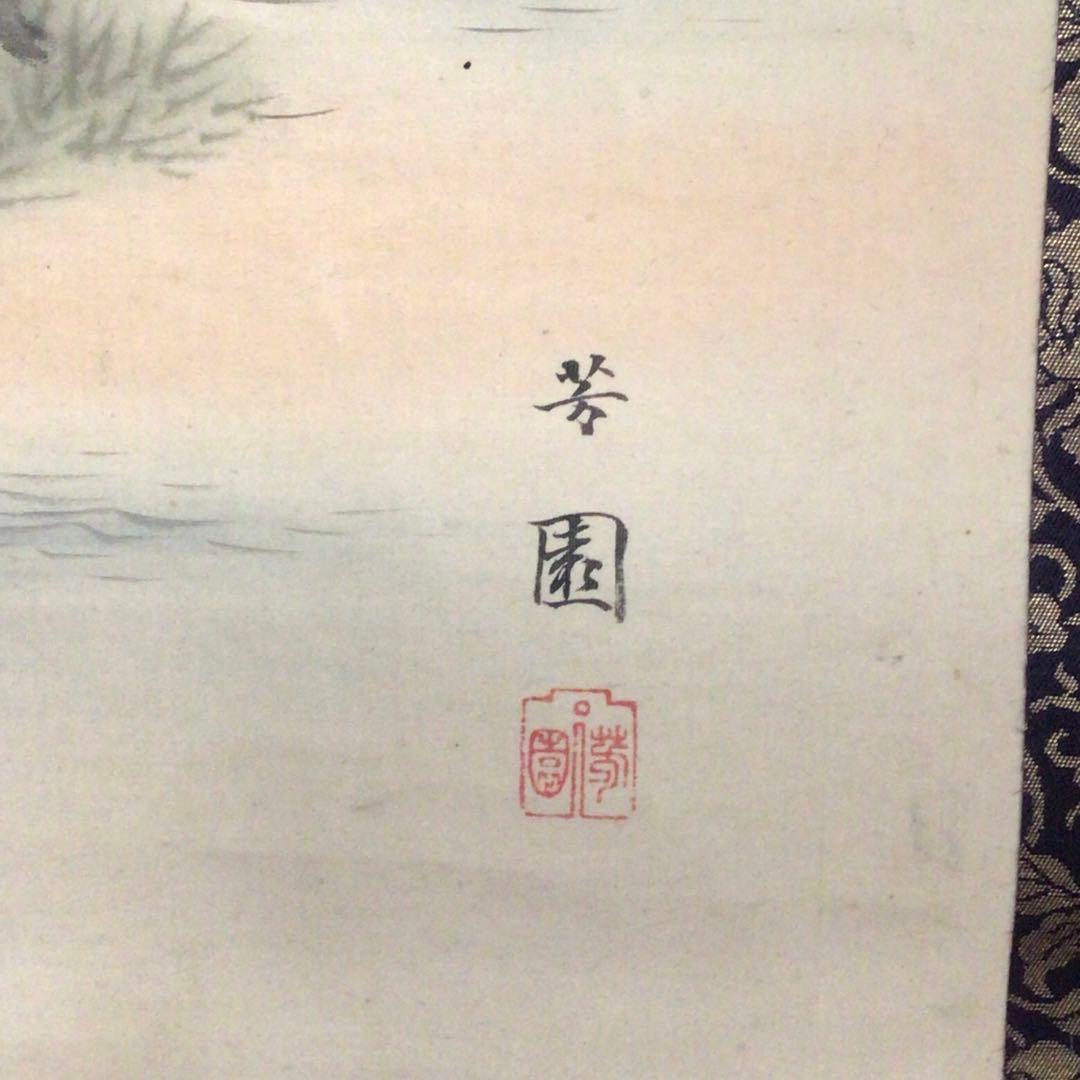 芳園
芳園